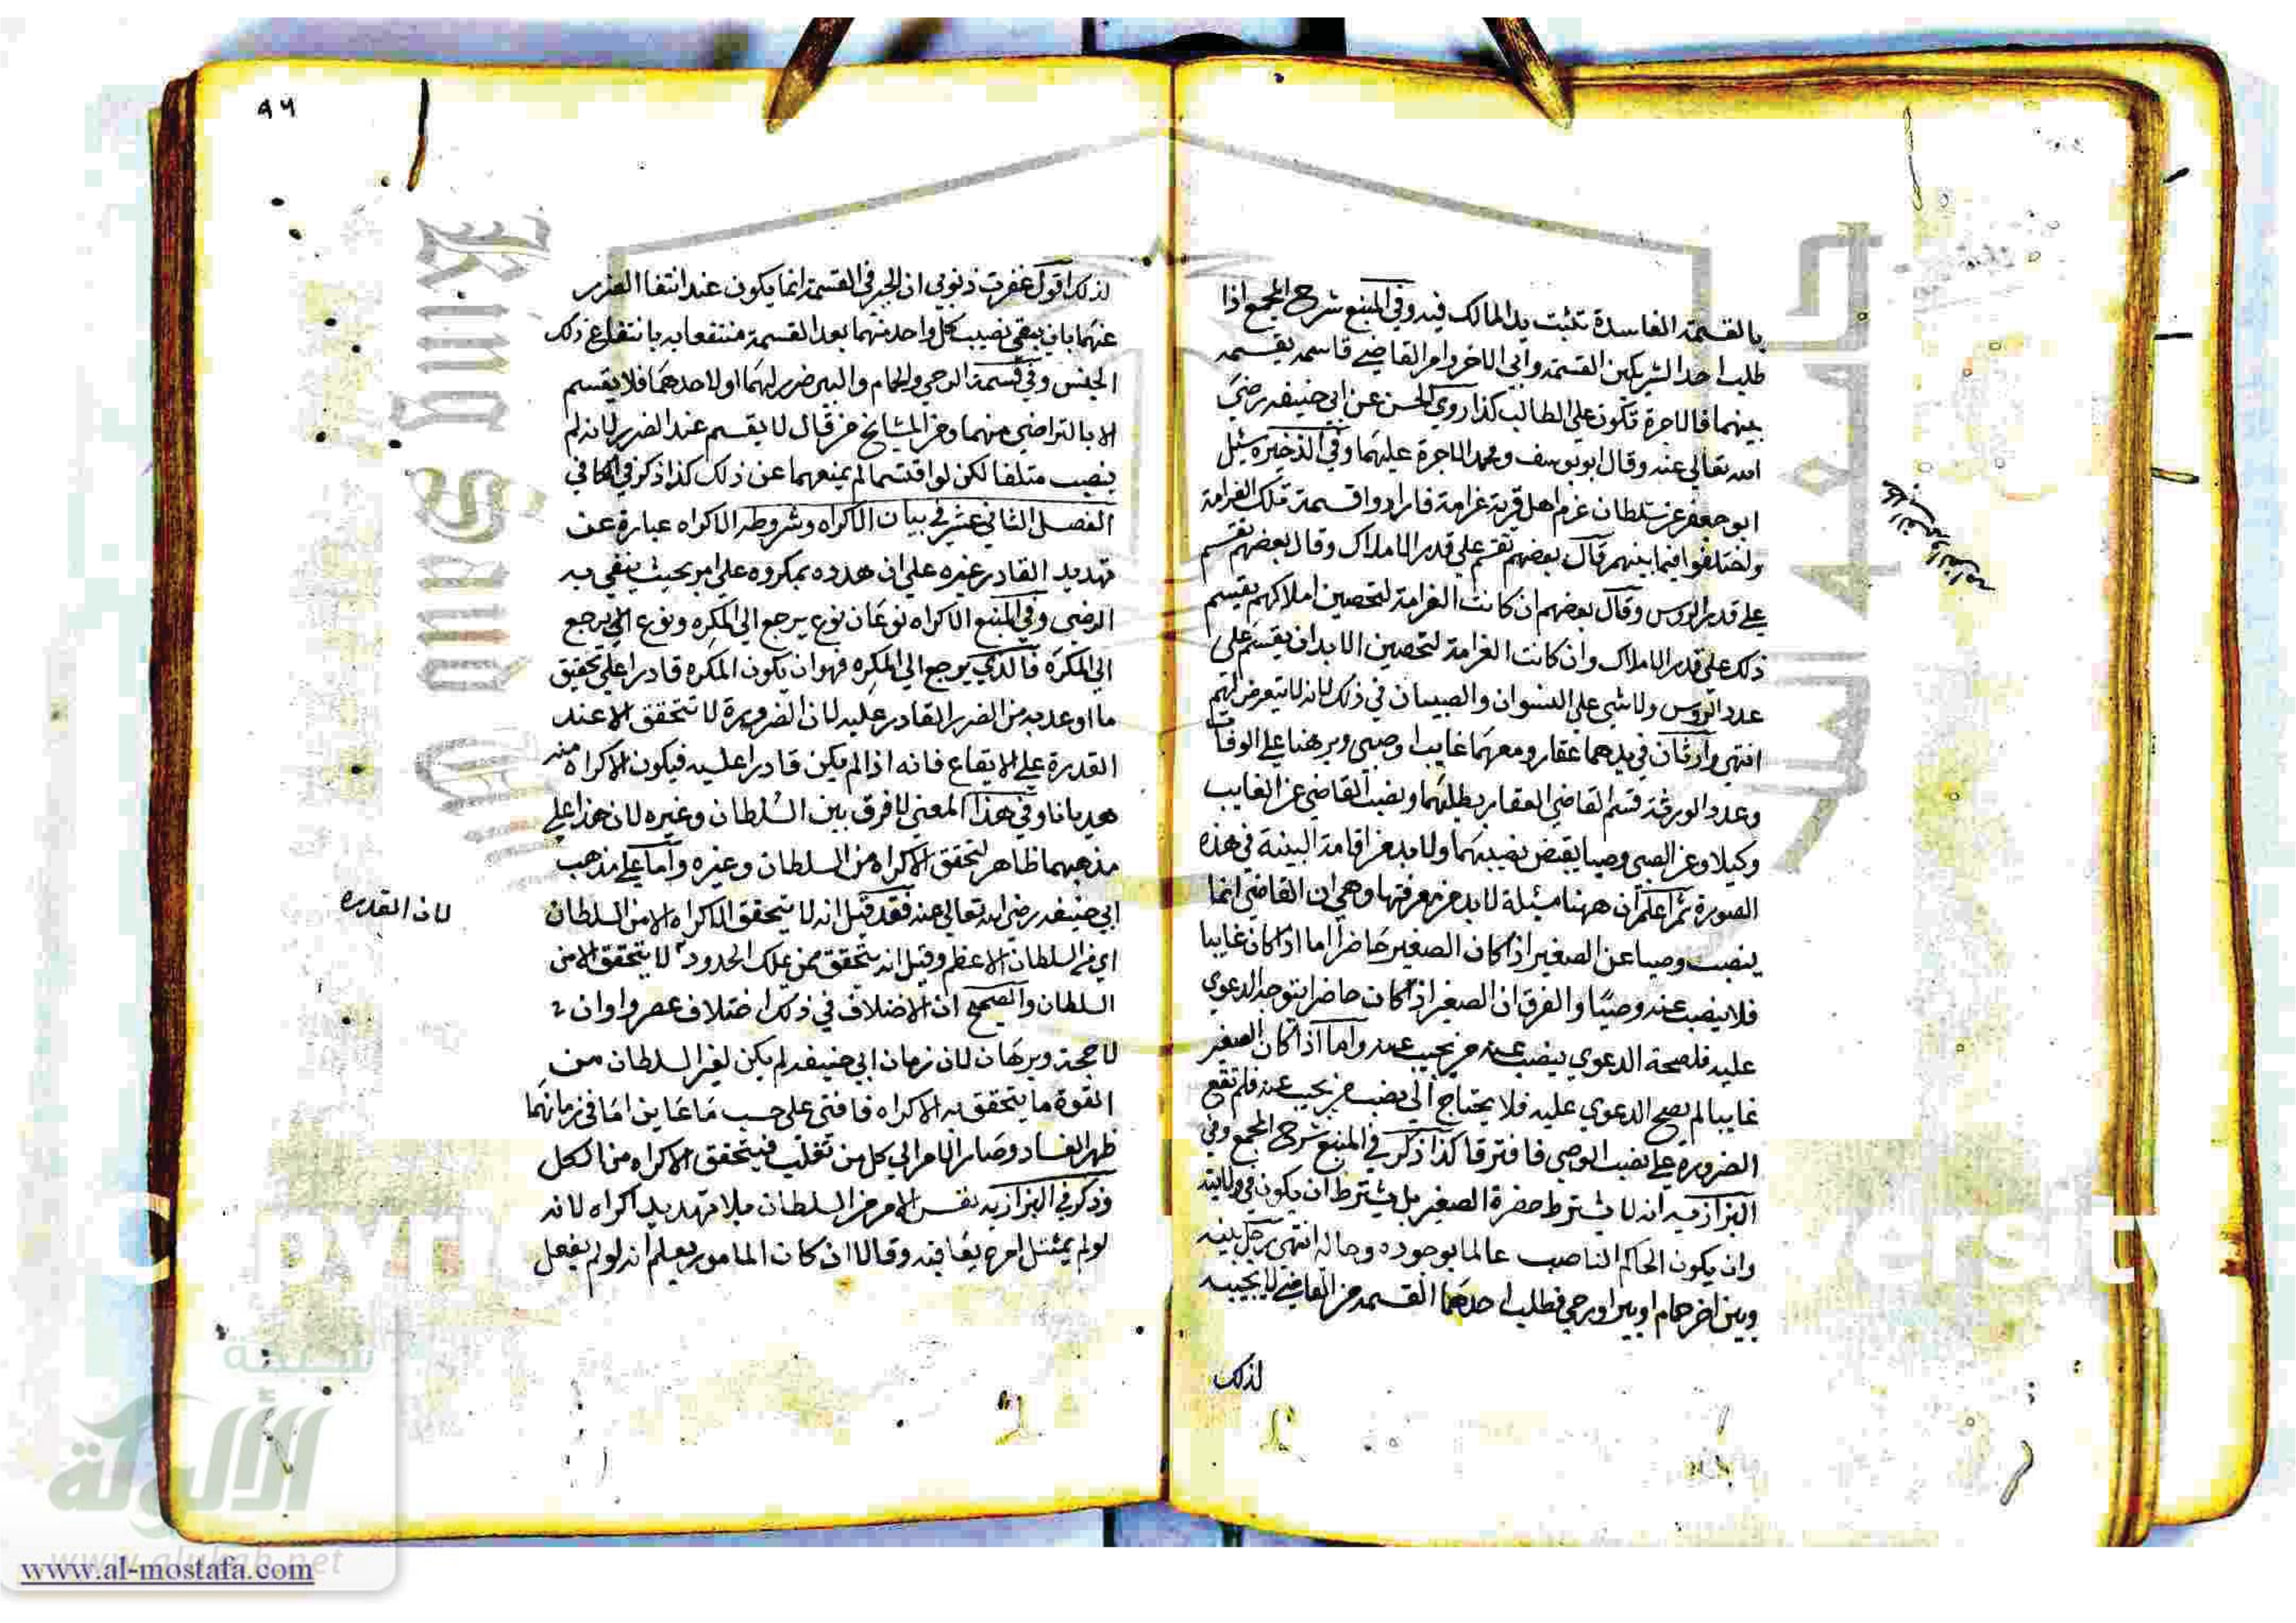 بالقسمة الفاسدة تثبت يد المالك فيه وفي المنبع شرح المجمع اذا
طلب احد الشريكين القسمة وابي الاخر وامر القاضي قاسمه يقسمه
بينهما فالاجرة تكون علي الطالب كذا روي الحسن عن ابي حنيفه رضي
الله تعالي عنه وقال ابو يوسف ومحمد الاجرة عليهما وفي الذخيرة سئل
ابو جعفر عن سلطان غرم اهل قرية غرامة فارادوا قسمة تلك الغرامة
واختلفوا فيما بينهم قال بعضهم تقسم علي قدر الاملاك وقال بعضهم تقسم
علي قدر الروس وقال بعضهم ان كانت الغرامة لتحصين املاكهم يقسم
ذلك علي قدر الاملاك وان كانت الغرامة لتحصين الابدان يقسم علي
عدد الروس ولا شي علي النسوان والصبيان في ذلك لانه لا يتعرض لهم
انتهي وارثان في يدهما عقار ومعهما غايب او صبي وبرهنا علي الوفاة
وعدد الورثة قسم القاضي العقار بطلبهما ونصب القاضي عن الغايب
وكيلا وعن الصبي وصيا يقبض نصيبهما ولا بد من اقامة البينة في هذه
الصورة ثم اعلم ان ههنا مسئلة لا بد من معرفتها وهي ان القاضي انما
ينصب وصيا عن الصغير اذا كان الصغير حاضرا اما اذا كان غايبا
فلا ينصب عنه وصيا والفرق ان الصغير اذا كان حاضرا يتوجه الدعوي
عليه فلصحة الدعوي ينصب عنه من يجيب عنه واما اذا كان الصغير
غايبا لم يصح الدعوي عليه فلا يحتاج الي نصب من يجيب عنه فلم تقع
الضرورة علي نصب الوصي فافترقا كذا ذكر في المنبع شرح المجمع وفي
البزازيه انه لا يشترط حضرة الصغير بل يشترط ان يكون في ولايته
وان يكون الحاكم الناصب عالما بوجوده وحاله انتهي رجل بينه
وبين اخر حمام او بير او رحي فطلب احدهما القسمه من القاضي لا يجيبه
لذلك
٩٦
لذلك اقول غفرت ذنوبي ان الجبر في القسمة انما يكون عند انتفا الضرر
عنهما بان يبقي نصيب كل واحد منهما بعد القسمة منتفعا به بانتفاع ذلك
الجنس وفي قسمة الرحي والحمام والبير ضرر لهما او لاحدهما فلا يقسم
الا بالتراضي منهما ومن المشايخ من قال لا يقسم عند الضرر لانه لم
ينصب متلفا لكن لو اقتسما لم يمنعهما عن ذلك كذا ذكر في الكافي
الفصل الثاني عشر في بيان الاكراه وشروطه الاكراه عبارة عن
تهديد القادر غيره علي ان هدده بمكروه علي امر بحيث ينفي به
الرضي وفي المنبع الاكراه نوعان نوع يرجع الي المكره ونوع يرجع
الي المكره فالذي يرجع الي المكره فهو ان يكون المكره قادرا علي تحقيق
ما اوعد به من الضرر القادر عليه لان الضرورة لا تتحقق الا عند
القدرة علي الايقاع فانه اذا لم يكن قادرا عليه فيكون الاكراه منه
هديانا وفي هذا المعني لا فرق بين السلطان وغيره لان هذا علي
مذهبهما ظاهر لتحقق الاكراه من السلطان وغيره واما علي مذهب
ابي حنيفه رضي الله تعالي عنه فقد قيل انه لا يتحقق الاكراه الا من السلطان
اي من السلطان الاعظم وقيل انه يتحقق ممن يملك الحدود لا يتحقق الا من
لان القدره
السلطان والصحيح ان الاختلاف في ذلك اختلاف عصر واوان
لا حجة وبرهان لان زمان ابي حنيفه لم يكن لغير السلطان من
القوة ما يتحقق به الاكراه فافتي علي حسب ما عاين اما في زمانهما
ظهر الفساد وصار الامر الي كل من تغلب فيتحقق الاكراه من الكل
وذكر في البزازيه نفس الامر من السلطان بلا تهديد اكراه لانه
لو لم يمتثل امره يعاقبه وقالا ان كان المامور يعلم انه لو لم يفعل
King Saud
ersity
شبكة
الألوكة
www.alukah.net
www.al-mostafa.com